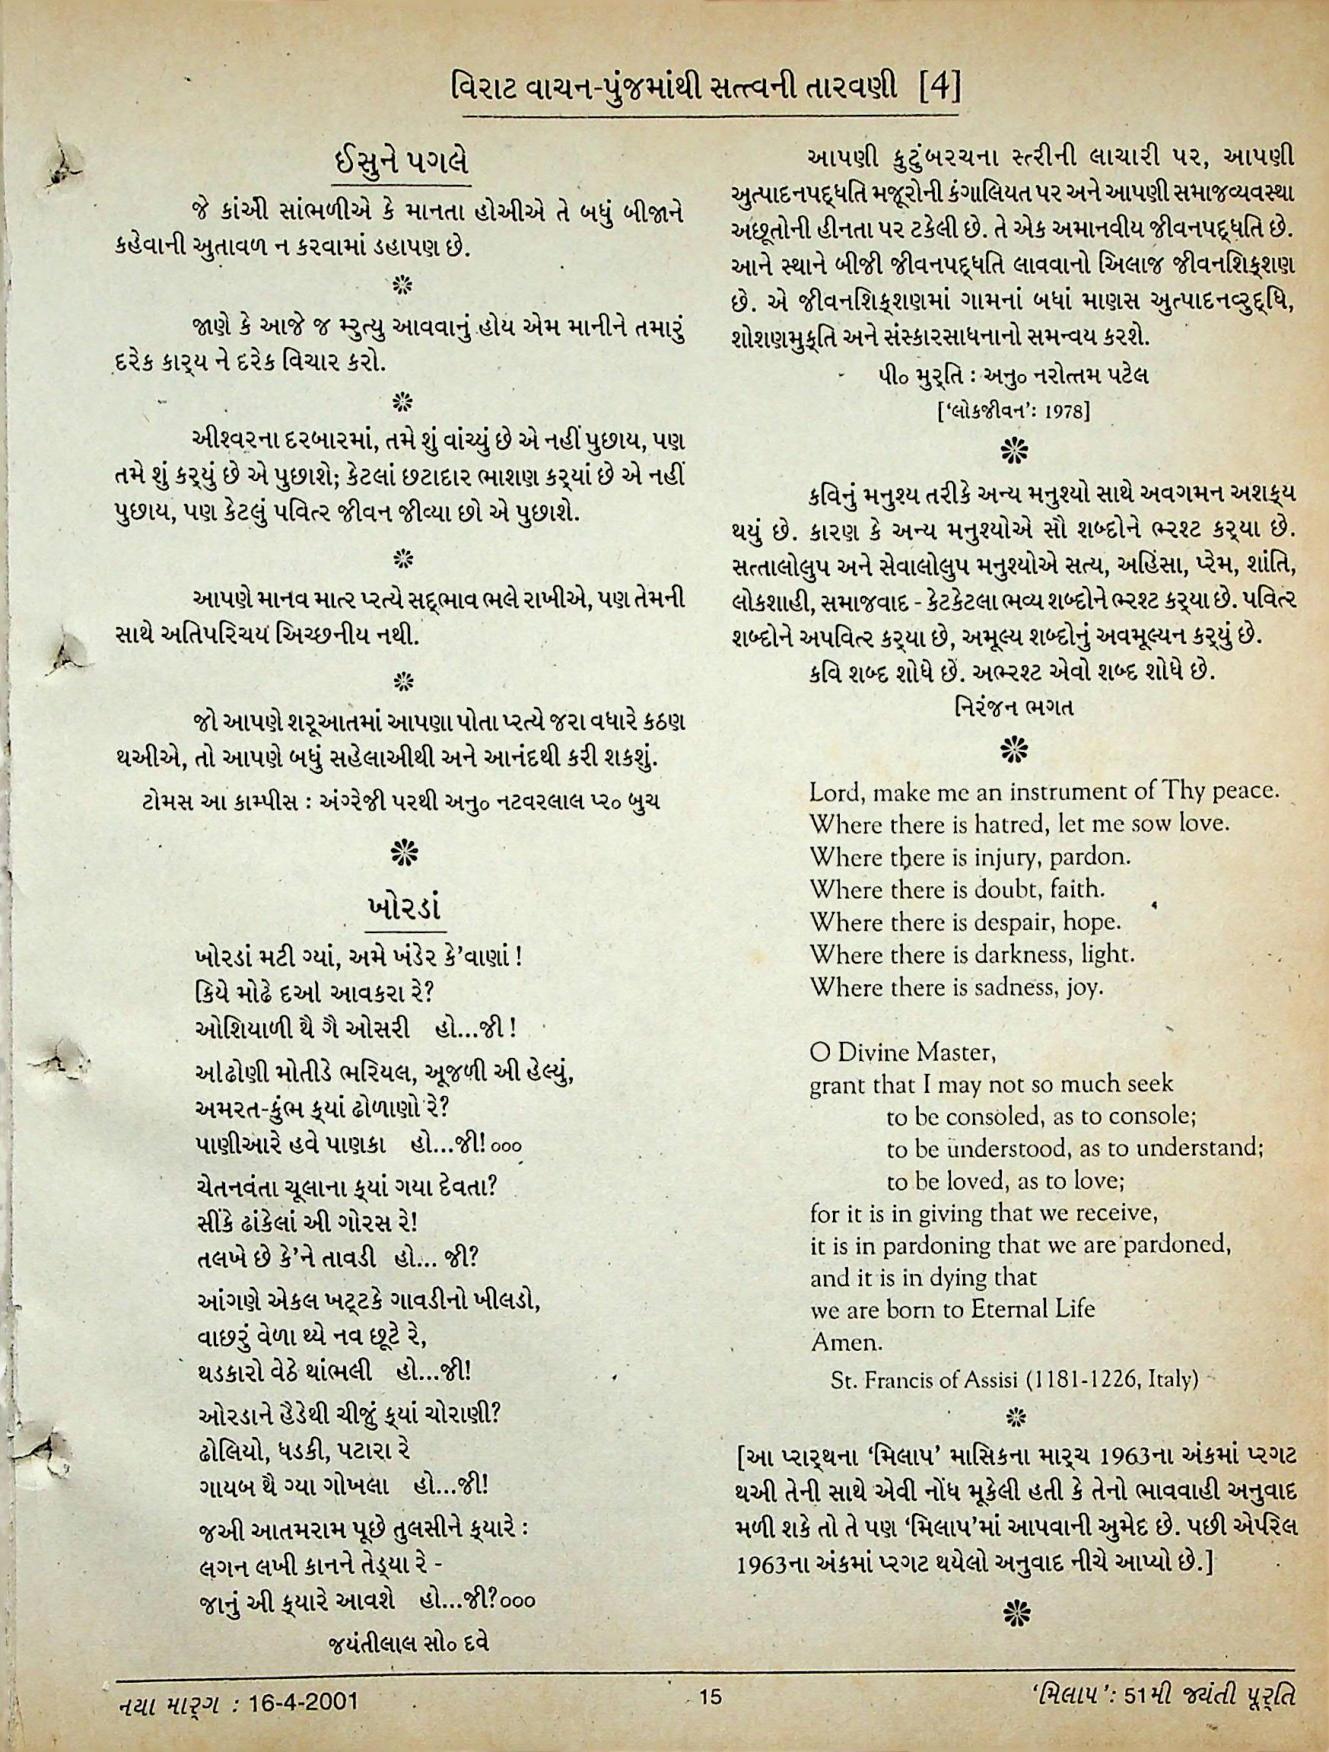 વિરાટ વાચન-પુંજમાંથી સત્ત્વની તારવણી [4]
ઈસુને પગલે
જે કાંઅી સાંભળીએ કે માનતા હોઅીએ તે બધું બીજાને
કહેવાની અુતાવળ ન કરવામાં ડહાપણ છે.
જાણે કે આજે જ મ્રુત્યુ આવવાનું હોય એમ માનીને તમારું
દરેક કાર્ય ને દરેક વિચાર કરો.
અીશ્વરના દરબારમાં, તમે શું વાંચ્યું છે એ નહીં પુછાય, પણ
તમે શું કર્યું છે એ પુછાશે; કેટલાં છટાદાર ભાશણ કર્યાં છે એ નહીં
પુછાય, પણ કેટલું પવિત્ર જીવન જીવ્યા છો એ પુછાશે.
આપણે માનવ માત્ર પ્રત્યે સદ્ભાવ ભલે રાખીએ, પણ તેમની
સાથે અતિપરિચય અિચ્છનીય નથી.
જો આપણે શરૂઆતમાં આપણા પોતા પ્રત્યે જરા વધારે કઠણ
થઅીએ, તો આપણે બધું સહેલાઅીથી અને આનંદથી કરી શકશું.
ટોમસ આ કામ્પીસ : અંગ્રેજી પરથી અનુ૦ નટવરલાલ પ્ર૦ બુચ
ખોરડાં
ખોરડાં મટી ગ્યાં, અમે ખંડેર કે'વાણાં !
કિયે મોઢે દઅીં આવકરા રે?
ઓશિયાળી થૈ ગૈ ઓસરી હો...જી !
અીંઢોણી મોતીડે ભરિયલ, અૂજળી અી હેલ્યું,
અમરત-કુંભ ક્યાં ઢોળાણો રે?
પાણીઆરે હવે પાણકા હો...જી!૦૦૦
ચેતનવંતા ચૂલાના ક્યાં ગયા દેવતા?
સીંકે ઢાંકેલાં અી ગોરસ રે!
તલખે છે કે'ને તાવડી હો... જી?
આંગણે એકલ ખટ્ટકે ગાવડીનો ખીલડો,
વાછરું વેળા થ્યે નવ છૂટે રે,
થડકારો વેઠે થાંભલી હો...જી!
ઓરડાને હૈડેથી ચીજું ક્યાં ચોરાણી?
ઢોલિયો, ધડકી, પટારા રે
ગાયબ થૈ ગ્યા ગોખલા હો...જી!
જઅી આતમરામ પૂછે તુલસીને ક્યારે :
લગન લખી કાનને તેડ્યા રે -
જાનું અી ક્યારે આવશે હો...જી?૦૦૦
જયંતીલાલ સો૦ દવે
આપણી કુટુંબરચના સ્ત્રીની લાચારી પર, આપણી
અુત્પાદનપદ્ધતિ મજૂરોની કંગાલિયત પર અને આપણી સમાજવ્યવસ્થા
અછૂતોની હીનતા પર ટકેલી છે. તે એક અમાનવીય જીવનપદ્ધતિ છે.
આને સ્થાને બીજી જીવનપદ્ધતિ લાવવાનો અિલાજ જીવનશિક્શણ
છે. એ જીવનશિક્શણમાં ગામનાં બધાં માણસ અુત્પાદનવ્રુદ્ધિ,
શોશણમુક્તિ અને સંસ્કારસાધનાનો સમન્વય કરશે.
પી૦ મુર્તિ : અનુ૦ નરોત્તમ પટેલ
['લોકજીવન': 1978]
કવિનું મનુશ્ય તરીકે અન્ય મનુશ્યો સાથે અવગમન અશક્ય
થયું છે. કારણ કે અન્ય મનુશ્યોએ સૌ શબ્દોને ભ્રશ્ટ કર્યા છે.
સત્તાલોલુપ અને સેવાલોલુપ મનુશ્યોએ સત્ય, અહિંસા, પ્રેમ, શાંતિ,
લોકશાહી, સમાજવાદ - કેટકેટલા ભવ્ય શબ્દોને ભ્રશ્ટ કર્યા છે. પવિત્ર
શબ્દોને અપવિત્ર કર્યા છે, અમૂલ્ય શબ્દોનું અવમૂલ્યન કર્યું છે.
કવિ શબ્દ શોધે છે. અભ્રશ્ટ એવો શબ્દ શોધે છે.
નિરંજન ભગત
Lord, make me an instrument of Thy peace.
Where there is hatred, let me sow love.
Where there is injury, pardon.
Where there is doubt, faith.
Where there is despair, hope.
Where there is darkness, light.
Where there is sadness, joy.
O Divine Master,
grant that I may not so much seek
to be consoled, as to console;
to be understood, as to understand;
to be loved, as to love;
for it is in giving that we receive,
it is in pardoning that we are pardoned,
and it is in dying that
we are born to Eternal Life
Amen.
St. Francis of Assisi (1181-1226, Italy)
[આ પ્રાર્થના 'મિલાપ' માસિકના માર્ચ 1963ના અંકમાં પ્રગટ
થઅી તેની સાથે એવી નોંધ મૂકેલી હતી કે તેનો ભાવવાહી અનુવાદ
મળી શકે તો તે પણ 'મિલાપ'માં આપવાની અુમેદ છે. પછી એપ્રિલ
1963ના અંકમાં પ્રગટ થયેલો અનુવાદ નીચે આપ્યો છે.]
નયા માર્ગ : 16-4-2001
15
'મિલાપ': 51મી જયંતી પૂર્તિ